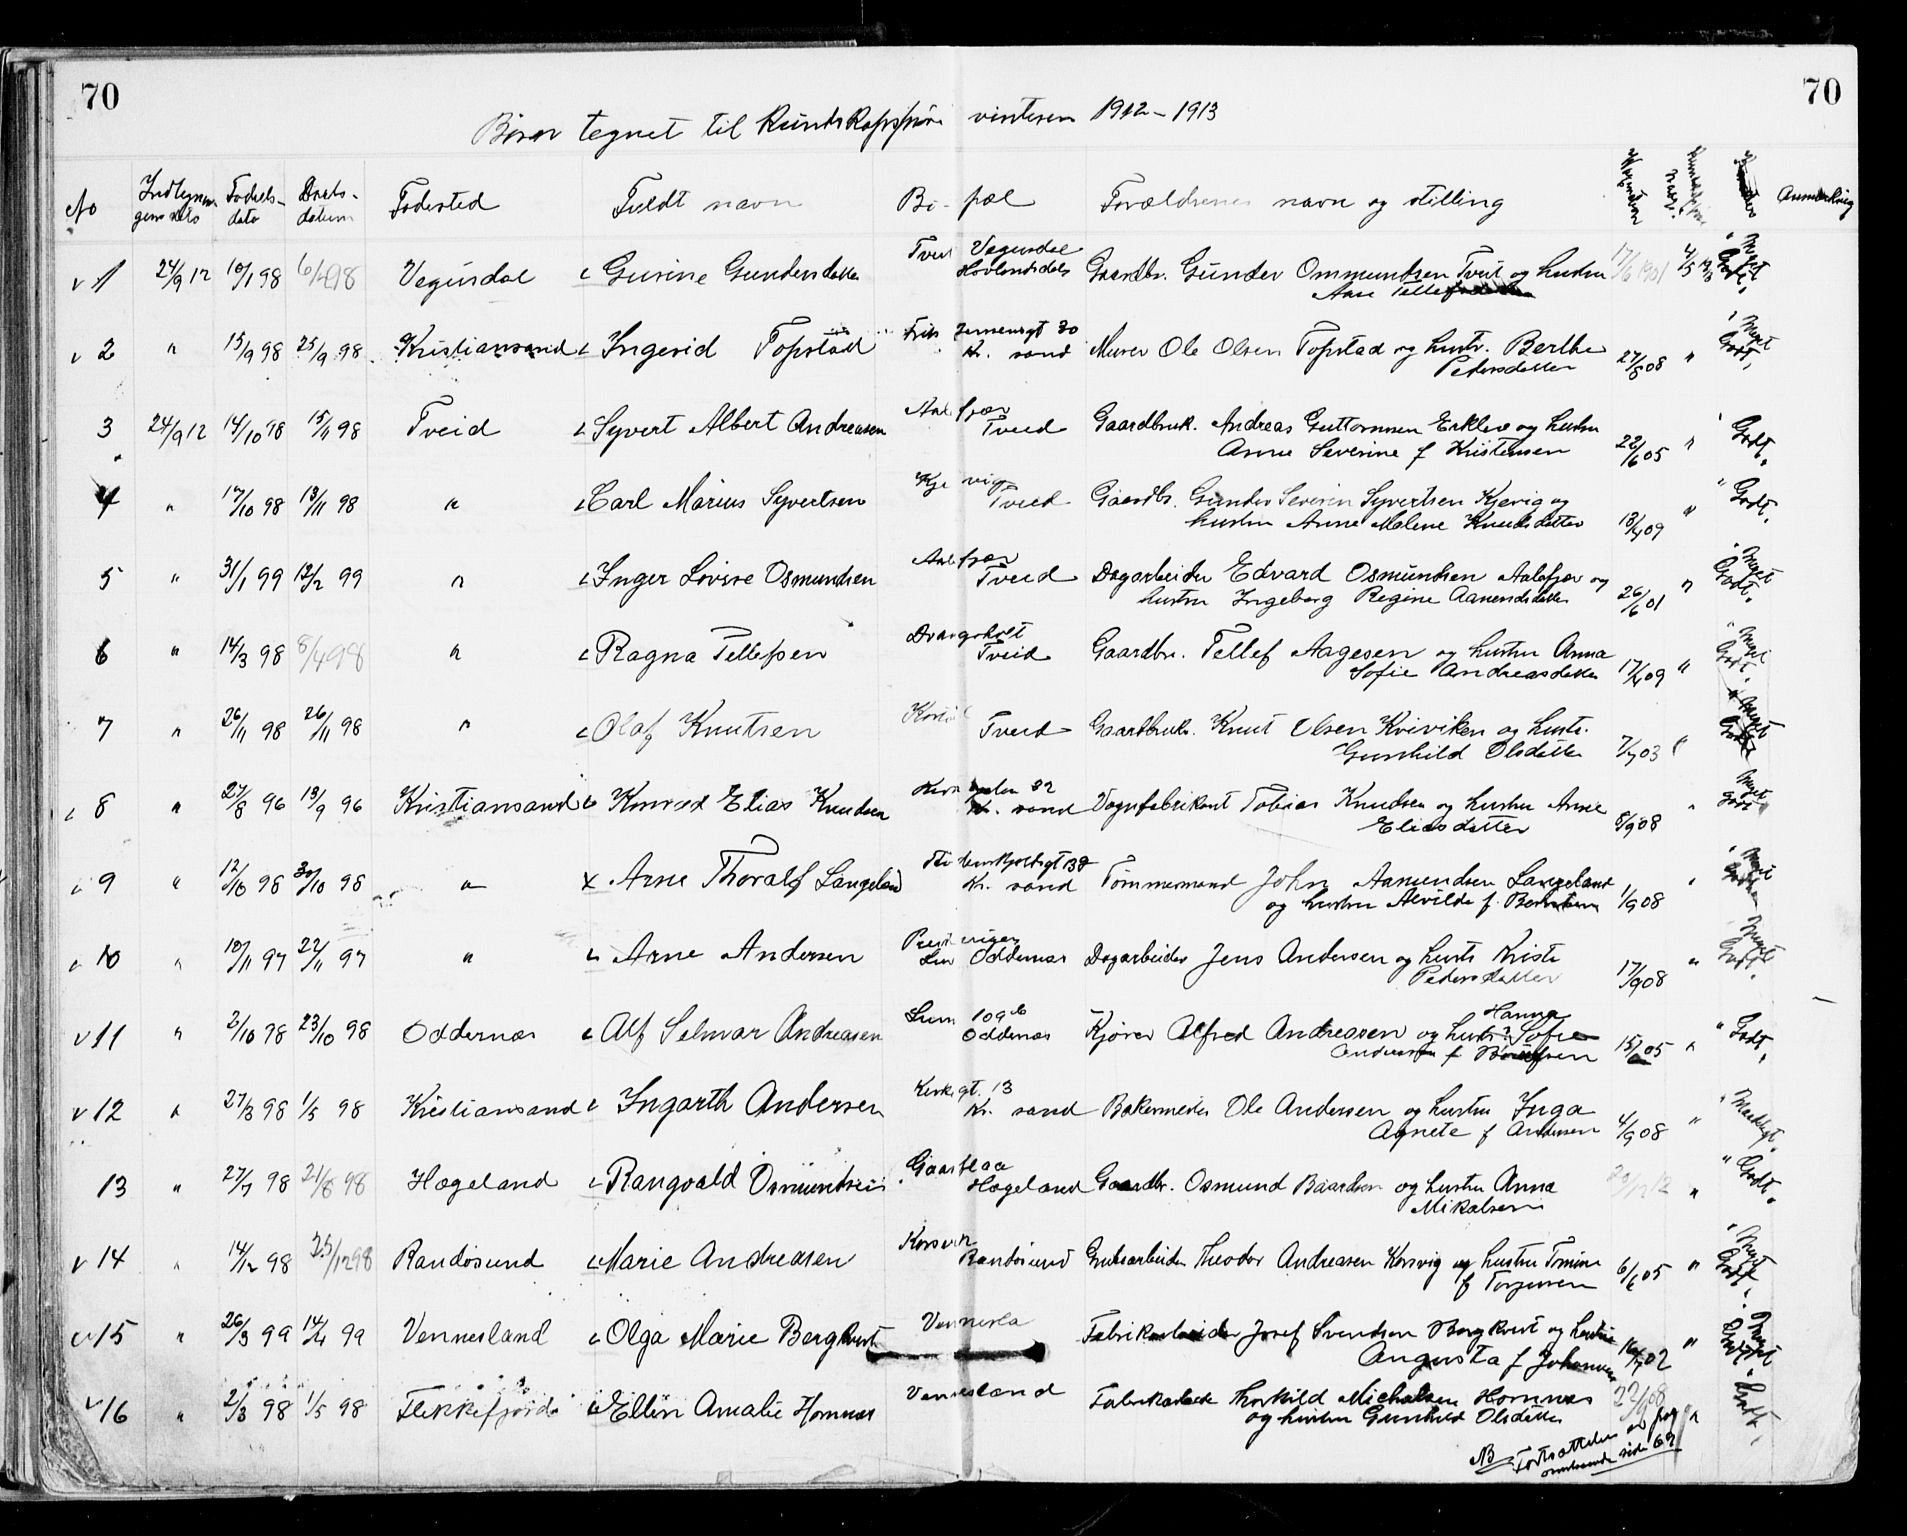 70 70
Børn tegnet til Kundskapsprøve vinteren 1912-1913
No Fødsels-dato Daabs-datum Fødested Fuldt navn Bo-pæl Forældrenes navn og stilling Anmerkning
1 24/9 12 10/1 98 Vegusdal Gurine Gundersdatter Tveit Vegusdal Gaardbr. Gunder Ommundsen Tveit og hustru
Hovlandsdals Aase 17/6 1901 Meget Godt.
2 " 15/9 98 25/9 98 Kristiansand Ingerid Topstad 30 Kr. sand Murer Ole Olsen Topstad og hustr. Berthe
Pedersdatter 27/8 08 " Meget Godt.
3 24/9 12 14/10 98 15/11 98 Tveid Syvert Albert Andreasen Aalefjær Tveid Gaardbruk. Andreas Guttormsen Eikleiv og hustru
Anne Severine f Kristensen 22/6 05 " Godt.
4 " 17/10 98 13/11 98 " Carl Marius Syvertsen Kjevig Tveid Gaardbr. Gunder Severin Syvertsen Kjevig og
hustru Anne Malene Knudsdatter 13/4 09 " Godt.
5 " 31/1 99 12/2 99 " Inger Lovise Osmundsen Aalefjær Tveid Dagarbeider Edvard Osmundsen Aalefjær og
hustru Ingeborg Regine Aanensdatter 26/6 01 " Meget Godt.
6 " 14/3 98 8/4 98 " Ragna Tellefsen Drangsholt Tveid Gaardbr. Tellef Aagesen og hustru Anna
Sofie Andreasdatter 17/4 09 " Meget Godt.
7 " 26/11 98 26/11 98 " Olaf Knutsen Tveid Gaardbruk. Knut Olsen Kviviken og hustr.
Gunhild Olsdatter 7/7 03 " Meget Godt
8 " 27/8 96 13/9 96 Kristiansand Konrad Elias Knudsen 22 Kr. sand Vognfabrikant Tobias Knudsen og hustru Anne
Eliasdatter 8/9 08 " Meget Godt
9 " 12/10 98 30/10 98 " Arne Thoralf Langeland Kr. sand Tømmermand John Aamundsen Langeland
og hustru Alvilde f. Berntsen 1/9 08 " Meget Godt
10 " 10/11 97 22/11 97 " Arne Andersen Oddernæs Dagarbeider Jens Andersen og hustr Kristi
Pedersdatter 17/9 08 " Meget Godt.
11 " 2/10 98 23/10 98 Oddernæs Alf Selmar Andreasen Lum 109 b Oddernæs Kjører Alfred Andreasen og hustr. Hanna Sofie
Andreasen f 15/6 05 " Godt.
12 " 27/3 98 1/5 98 Kristiansand Ingarth Andersen Kirkegt. 13 Kr. sand Bakermester Ole Andersen og hustru Inga
Agnete f Andersen 4/9 08 " Maadeligt
13 " 27/7 98 21/8 98 Hægeland Rangvald Osmundsen Gaaseflaa Hægeland Gaardbr. Osmund Baardsen og hustru Anna
Mikalsen " Godt.
14 " 14/12 98 25/12 98 Randøsund Marie Andreasen Korsvik Randøsund Grubearbeider Theodor Andreasen Korsvig og hustru Tomine
f Torjussen 6/6 05 " Meget Godt.
15 " 26/3 99 14/4 99 Vennesland Olga Marie Bergkvist Vennesla Fabrikarbeider Josef Svendsen Bergkvist og hustru
Augusta f Johannesen 16/7 02 " Meget Godt
16 " 2/3 98 1/5 98 Flekkefjord Ellen Amalie Homnæs Vennesland Fabrikarbeider Thorkild Michalsen Homnæs
og hustru Gunhild Olsdatter 22/9 08 " Godt.
NB Fortsættelse
omstaaende side 69